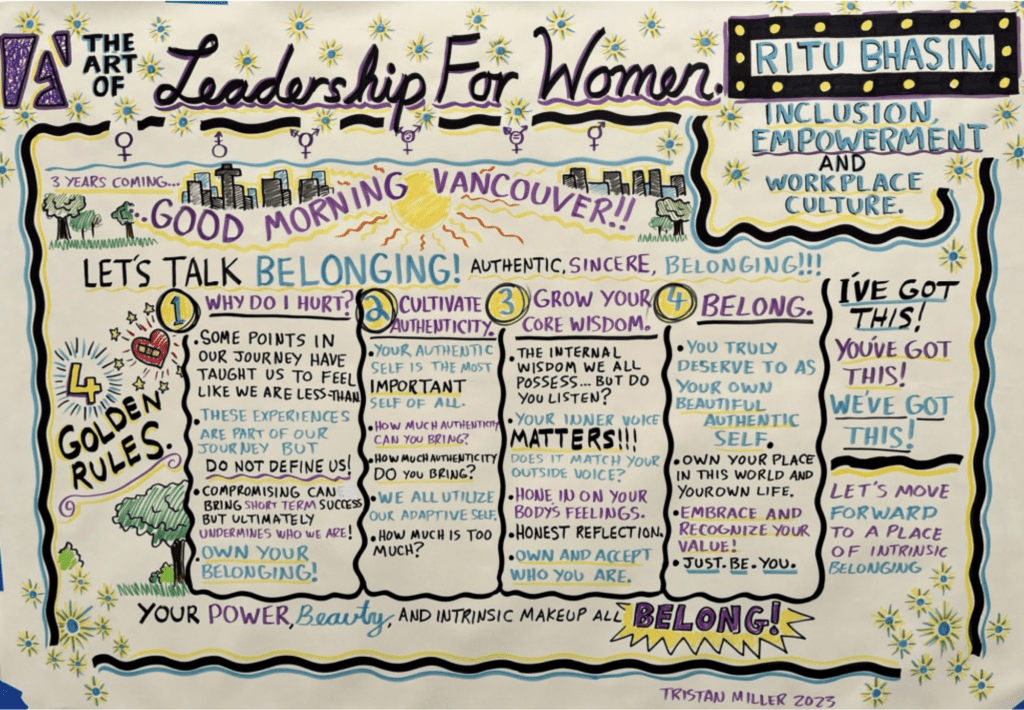 THE
ART
OF
Leadership For Women.
RITU BHASIN.
INCLUSION,
EMPOWERMENT
AND
WORKPLACE
CULTURE.
3 YEARS COMING...
..GOOD MORNING VANCOUVER!!
LET'S TALK BELONGING! AUTHENTIC, SINCERE, BELONGING!!!
4
GOLDEN
RULES.
1 WHY DO I HURT?
• SOME POINTS IN
OUR JOURNEY HAVE
TAUGHT US TO FEEL
LIKE WE ARE LESS-THAN
• THESE EXPERIENCES
ARE PART OF OUR
JOURNEY BUT
DO NOT DEFINE US!
• COMPROMISING CAN
BRING SHORT TERM SUCCESS
BUT ULTIMATELY
UNDERMINES WHO WE ARE!
• OWN YOUR
BELONGING!
2 CULTIVATE
AUTHENTICITY.
• YOUR AUTHENTIC
SELF IS THE MOST
IMPORTANT
SELF OF ALL.
• HOW MUCH AUTHENTICITY
CAN YOU BRING?
• HOW MUCH AUTHENTICITY
DO YOU BRING?
• WE ALL UTILIZE
OUR ADAPTIVE SELF.
• HOW MUCH IS TOO
MUCH?
3 GROW YOUR
CORE WISDOM.
• THE INTERNAL
WISDOM WE ALL
POSSESS... BUT DO
YOU LISTEN?
• YOUR INNER VOICE
MATTERS!!!
DOES IT MATCH YOUR
OUTSIDE VOICE?
• HONE IN ON YOUR
BODY'S FEELINGS.
• HONEST REFLECTION.
• OWN AND ACCEPT
WHO YOU ARE.
4 BELONG.
• YOU TRULY
DESERVE TO AS
YOUR OWN
BEAUTIFUL
AUTHENTIC
SELF.
• OWN YOUR PLACE
IN THIS WORLD AND
YOUR OWN LIFE.
• EMBRACE AND
RECOGNIZE YOUR
VALUE!
• JUST. BE. YOU.
I'VE GOT
THIS!
YOU'VE GOT
THIS!
WE'VE GOT
THIS!
LET'S MOVE
FORWARD
TO A PLACE
OF INTRINSIC
BELONGING
YOUR POWER, Beauty, AND INTRINSIC MAKEUP ALL BELONG!
TRISTAN MILLER 2023